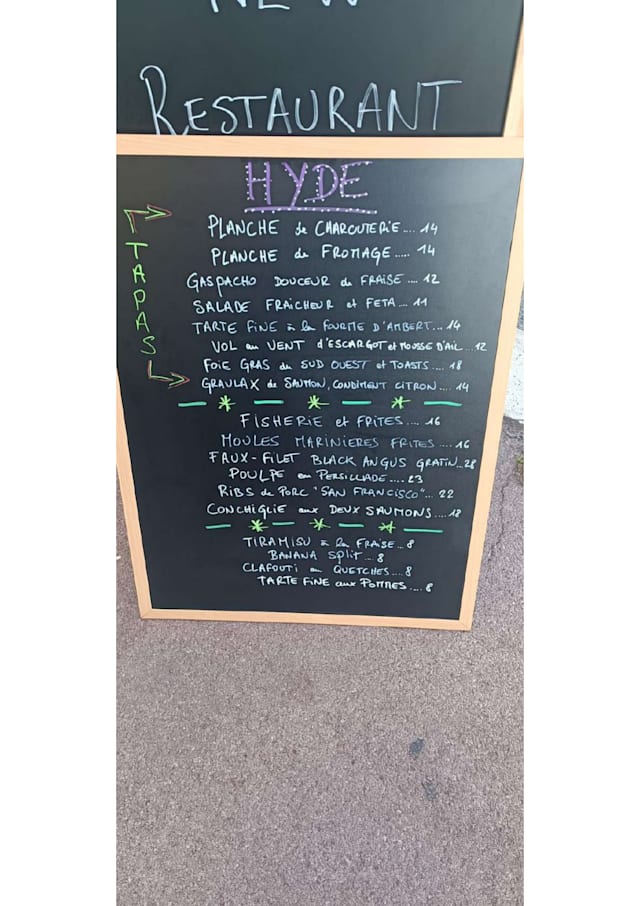 NEW
RESTAURANT
HYDE
TAPAS
PLANCHE de CHARCUTERIE.... 14
PLANCHE de FROMAGE..... 14
GASPACHO DOUCEUR de FRAISE .... 12
SALADE FRAICHEUR et FETA... 11
TARTE FINE à la FOURME D'AMBERT... 14
VOL au VENT d'ESCARGOT et MOUSSE D'AIL... 12
FOIE GRAS du SUD OUEST et TOASTS.... 18
GRAVLAX de SAUMON, CONDIMENT CITRON.... 14
FISHERIE et FRITES.... 16
MOULES MARINIERES FRITES .... 16
FAUX-FILET BLACK ANGUS GRATIN...28
POULPE en PERSILLADE....23
RIBS de PORC "SAN FRANCISCO"... 22
CONCHIGLIE aux DEUX SAUMONS.... 18
TIRAMISU à la FRAISE...8
BANANA split...8
CLAFOUTI au QUETCHES....8
TARTE FINE aux POMMES....8